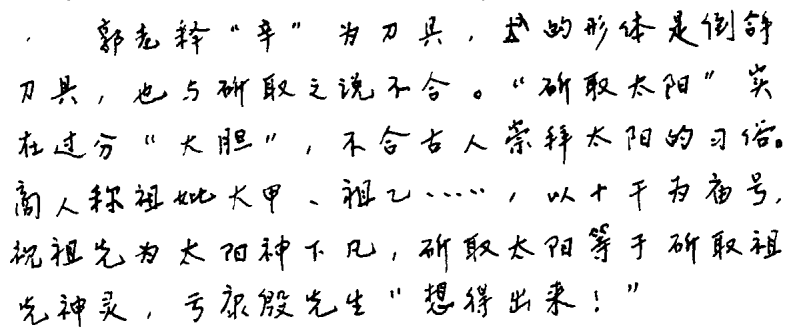 郭老释“辛”为刀具，的形体是倒
刀具，也与斫取之说不合。“斫取太阳”实
在过分“大胆”，不合古人崇拜太阳的习俗。
商人称祖妣大甲、祖乙……，以十干为庙号，
视祖先为太阳神下凡，斫取太阳等于斫取祖
先神灵，亏康殷先生“想得出来！”